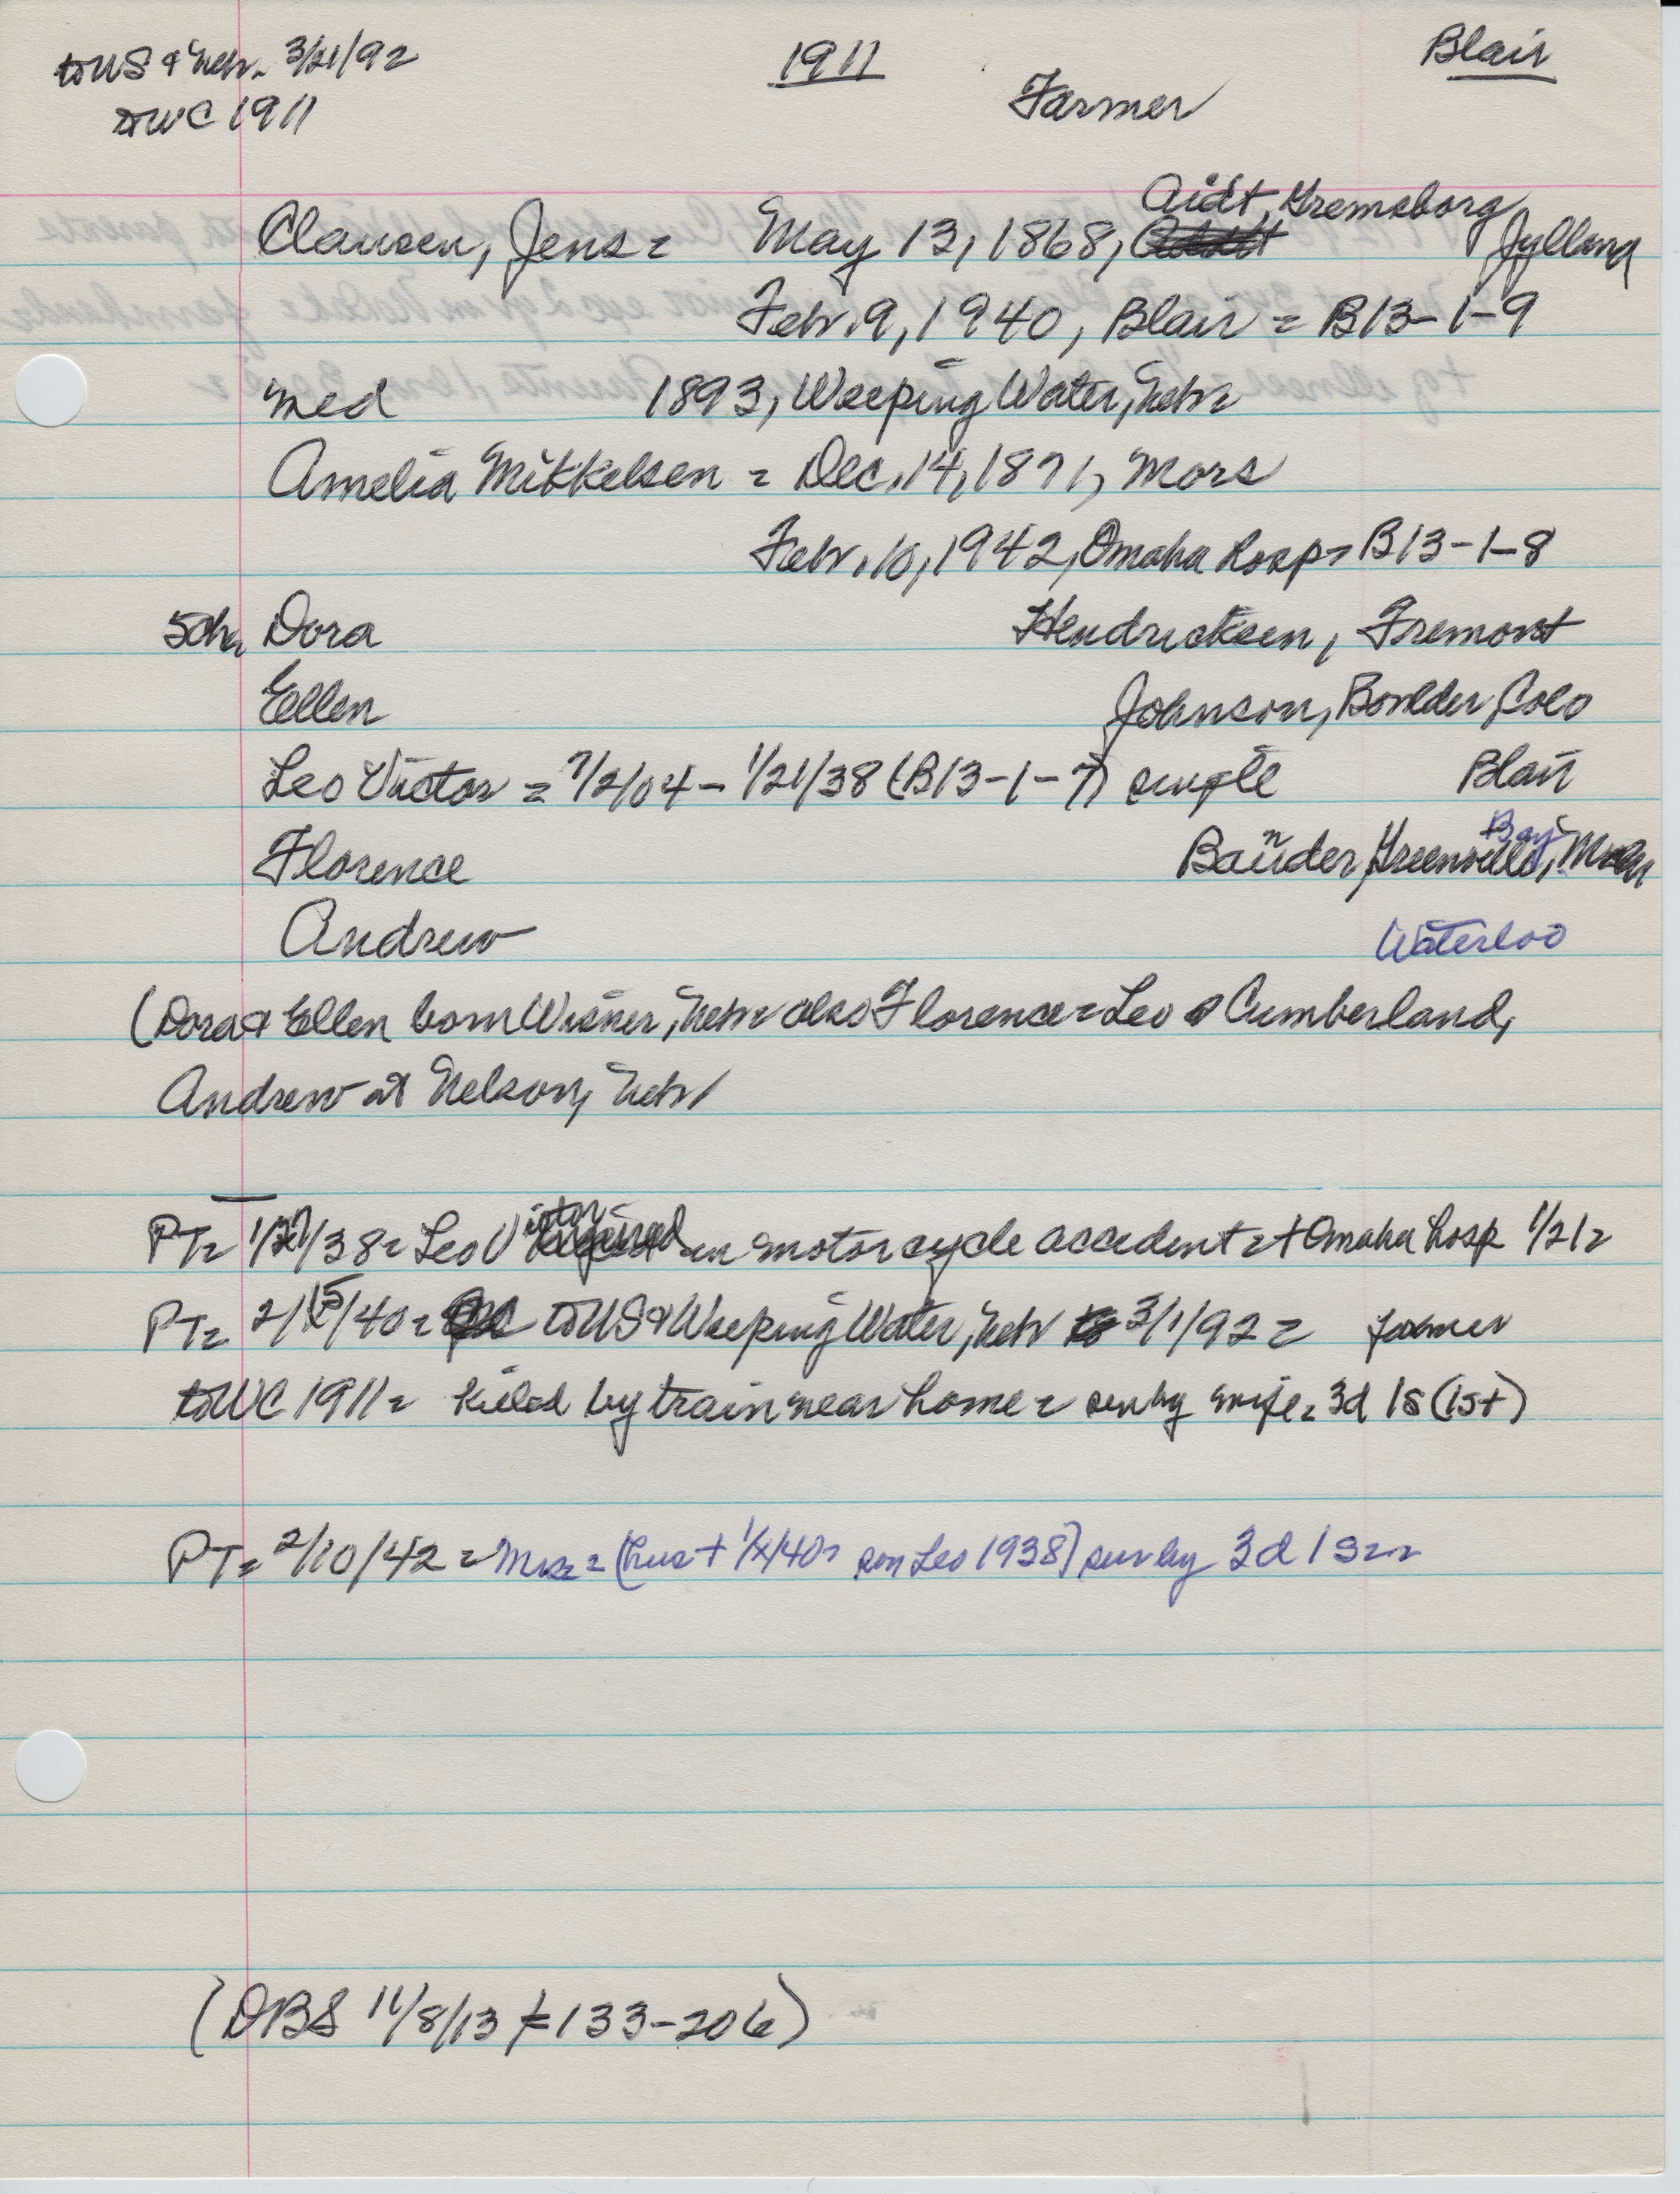 to US & Nebr. 3/21/92 1911 Blair
to WC 1911 Farmer
Aidt, Gremsborg,
Clausen, Jens = May 13, 1868, Jylland
Febr. 9, 1940, Blair = B13-1-9
med 1893, Weeping Water, Nebr =
Amelia Mikkelsen = Dec. 14, 1871, Mors
Febr. 10, 1942, Omaha hosp = B13-1-8
5ch, Dora Hendricksen, Fremont
Ellen Johnson, Boulder, Colo
Leo Victor = 7/2/04 - 1/21/38 (B13-1-7) single Blair
Florence Bauder, Green Bay,
Andrew Waterloo
(Dora & Ellen born Wisner, Nebr = also Florence = Leo Cumberland,
Andrew at Nelson, Nebr
PT = /38 = Leo Victor injured in motor cycle accident = + Omaha hosp 1/21 =
PT = 2/15/40 = to US & Weeping Water, Nebr 3/1/92 = farmer
to WC 1911 = killed by train near home = surby wife = 3d 1s (1s+)
PT = 2/10/42 = Mrs = (hus + 1/x/40 = son Leo 1938) surby 3d 1s = =
(DBS 11/8/13 ≠ 133-206)